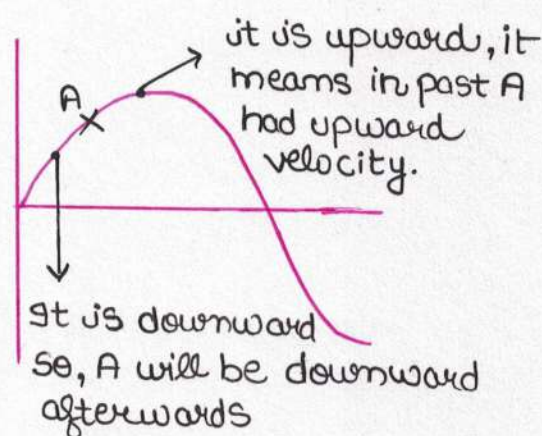 it is upward, it
means in past A
had upward
velocity.
A
It is downward
so, A will be downward
afterwards